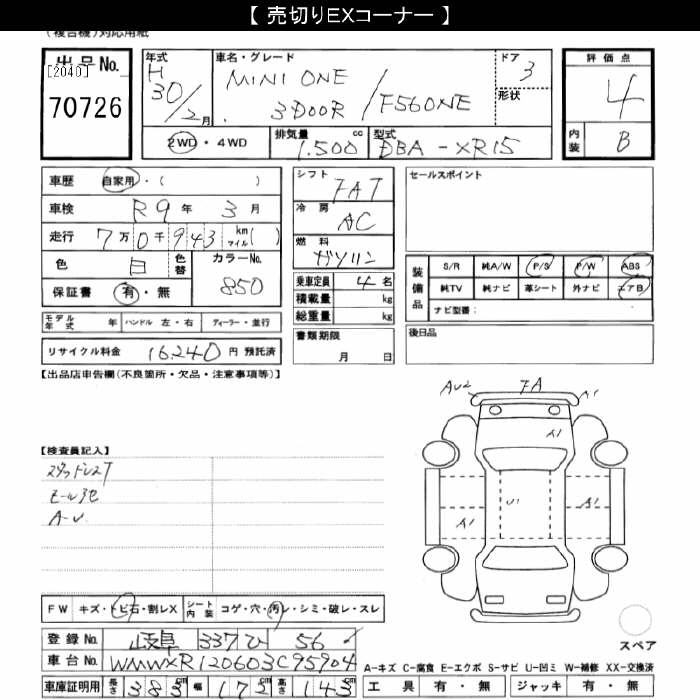 【 売切りEXコーナー 】
(複合機)対応用紙
出品No.
[2040]
70726
年式
H
30/2月
車名・グレード
MINI ONE
3DOOR / F56ONE
ドア
3
形状
評価点
4
内装
B
2WD・4WD
排気量
1.500 cc
型式
DBA-XR15
車歴 自家用・( )
車検 R9年 3月
走行 7万0千943 km マイル( )
色 白 色替 カラーNo.
850
保証書 有・無
モデル年式 年 ハンドル 左・右 ディーラー・並行
リサイクル料金 16,240 円 預託済
シフト
FAT
冷房
AC
燃料
ガソリン
乗車定員 4 名
積載量 kg
総重量 kg
書類期限
月 日
セールスポイント
装備品
S/R 純A/W P/S P/W ABS
純TV 純ナビ 革シート 外ナビ エアB
ナビ型番:
後日品
【出品店申告欄(不良箇所・欠品・注意事項等)】
【検査員記入】
スタッドレスT
A-U
AU2 FA A1
A1
U1
A1
A1
スペア
FW キズ・トビ石・割レX シート内装 コゲ・穴・汚レ・シミ・破レ・スレ
登録No. 岐阜 337 ひ 56
車台No. WMWXR120603C95904
車庫証明用 長さ 383cm 幅 172cm 高さ 143cm
A-キズ C-腐食 E-エクボ S-サビ U-凹ミ W-補修 XX-交換済
工具 有・無 ジャッキ 有・無